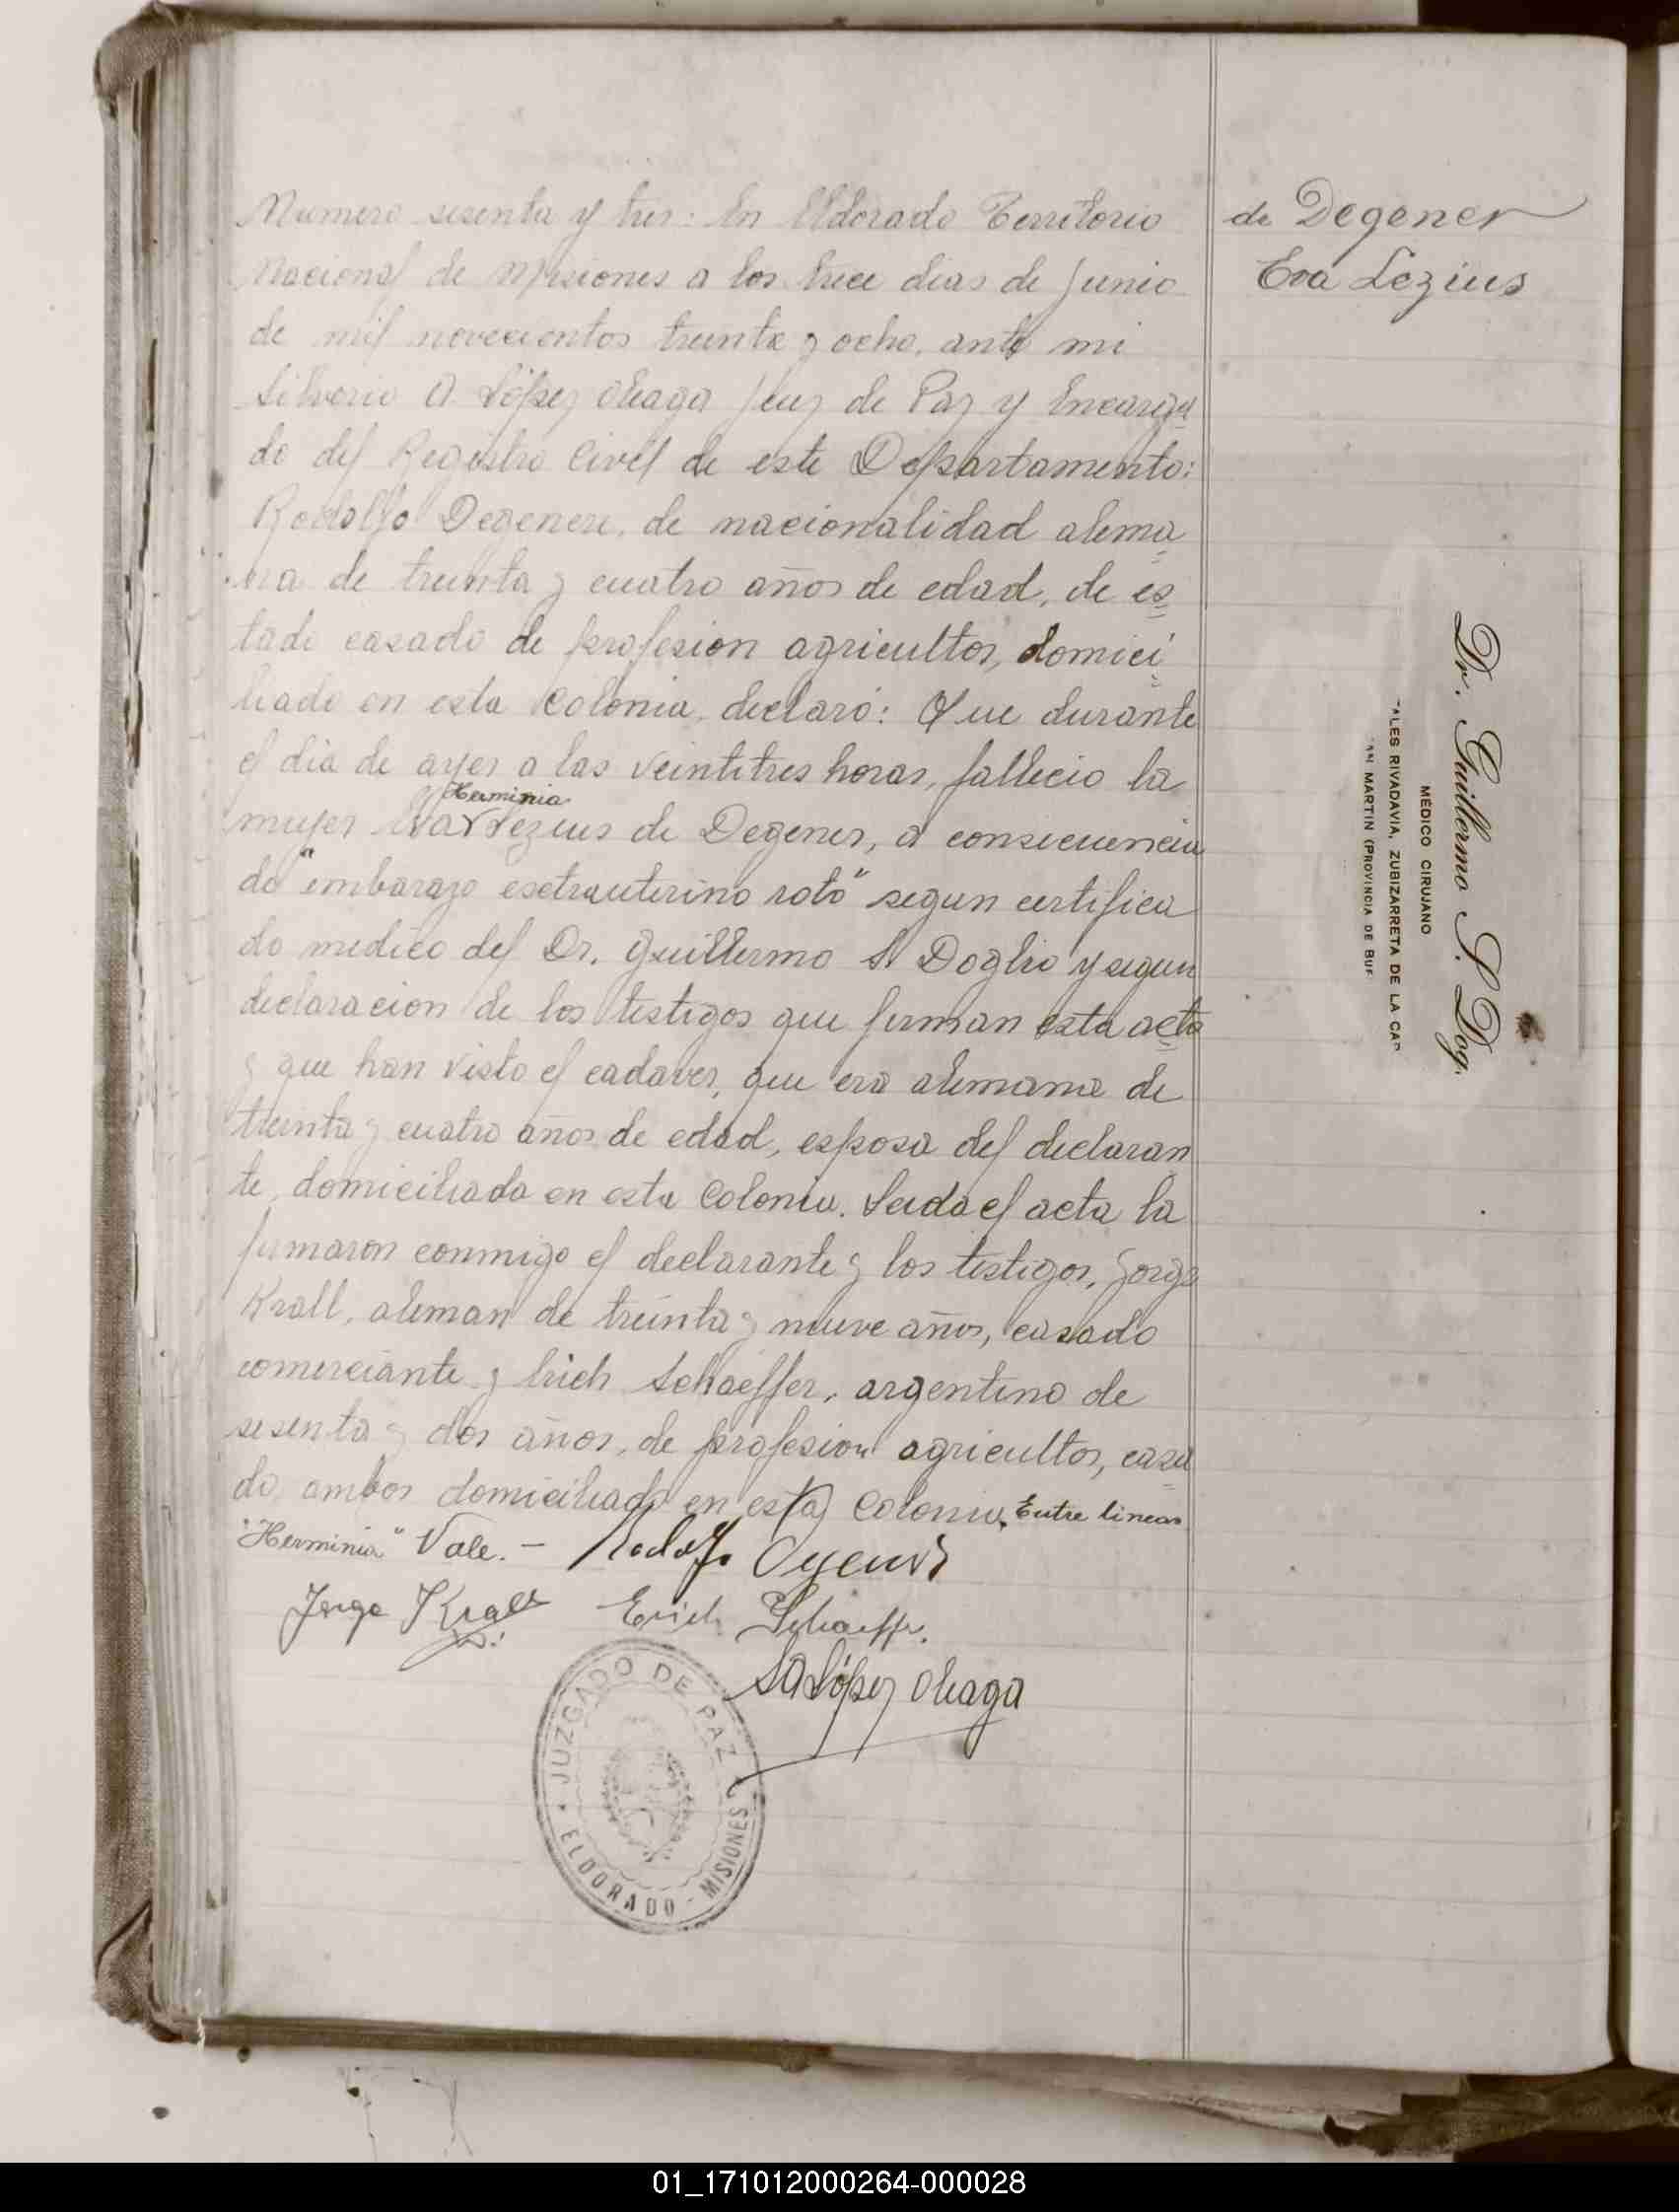 Numero sesenta y tres: En Eldorado Territorio
Nacional de Misiones a los trece dias de Junio
de mil novecientos treinta y ocho, ante mi
Silverio A. López Oleaga Juez de Paz y Encarga
do del Registro Civil de este Departamento:
Rodolfo Degener, de nacionalidad alema
na de treinta y cuatro años de edad, de es
tado casado de profesion agricultor, domici
liado en esta Colonia, declaró: Que durante
el dia de ayer a las veintitres horas, fallecio la
Herminia
mujer Eva Lezius de Degener, a consecuencia
de "embarazo esctrauterino roto" segun certifica
do medico del Dr. Guillermo S. Doglio y segun
declaracion de los testigos que firman esta acta
y que han visto el cadaver, que era alemana de
treinta y cuatro años de edad, esposa del declaran
te, domiciliada en esta Colonia. Leida el acta la
firmaron conmigo el declarante y los testigos, Jorge
Krall, aleman de treinta y nueve años, casado
comerciante y Erich Schaeffer, argentino de
sesenta y dos años, de profesion agricultor, casa
do, ambos domiciliado en esta Colonia. Entre lineas
"Herminia" Vale. — Rodolfo Degener
Jorge Krall Erich Schaeffer.
SA López Oleaga
JUZGADO DE PAZ
ELDORADO - MISIONES
de Degener
Eva Lezius
Dr. Guillermo S. Dog
MÉDICO CIRUJANO
ALES RIVADAVIA, ZUBIZARRETA DE LA CAP
MARTIN (PROVINCIA DE BUE
01_171012000264-000028